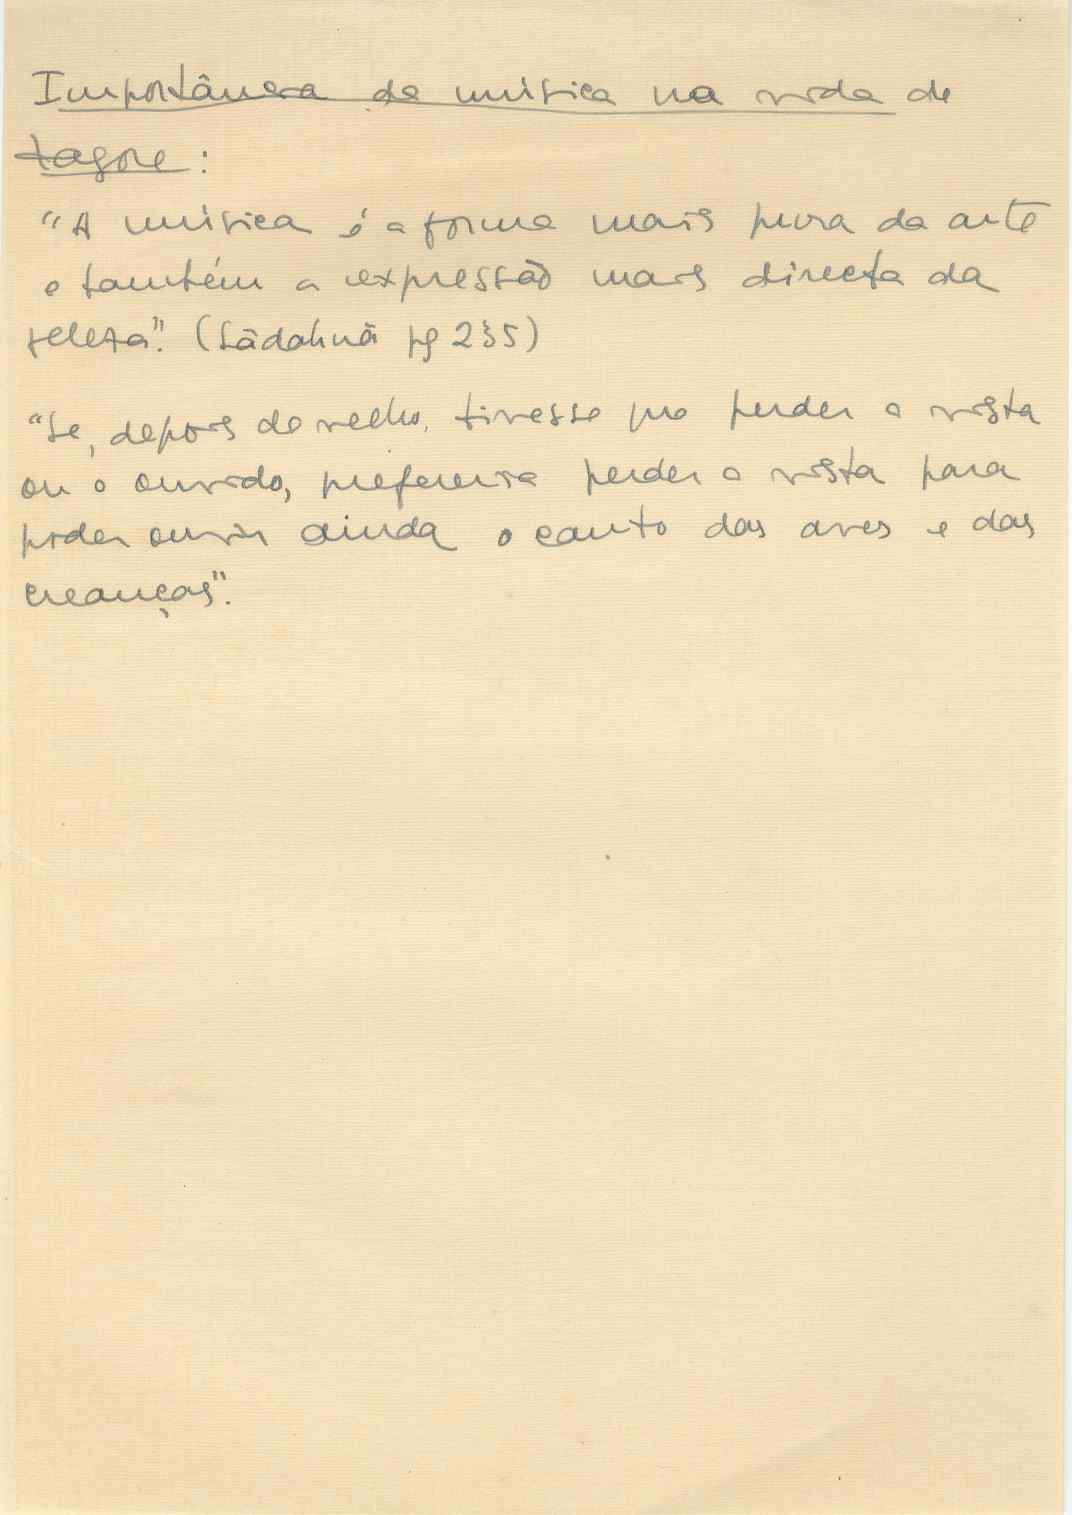 Importância da música na vida de
Tagore:
"A música é a forma mais pura da arte
e também a expressão mais directa da
beleza". (Sādahnā pg 235)
"Se, depois de velho, tivesse que perder a vista
ou o ouvido, preferiria perder a vista para
poder ouvir ainda o canto das aves e das
creanças".